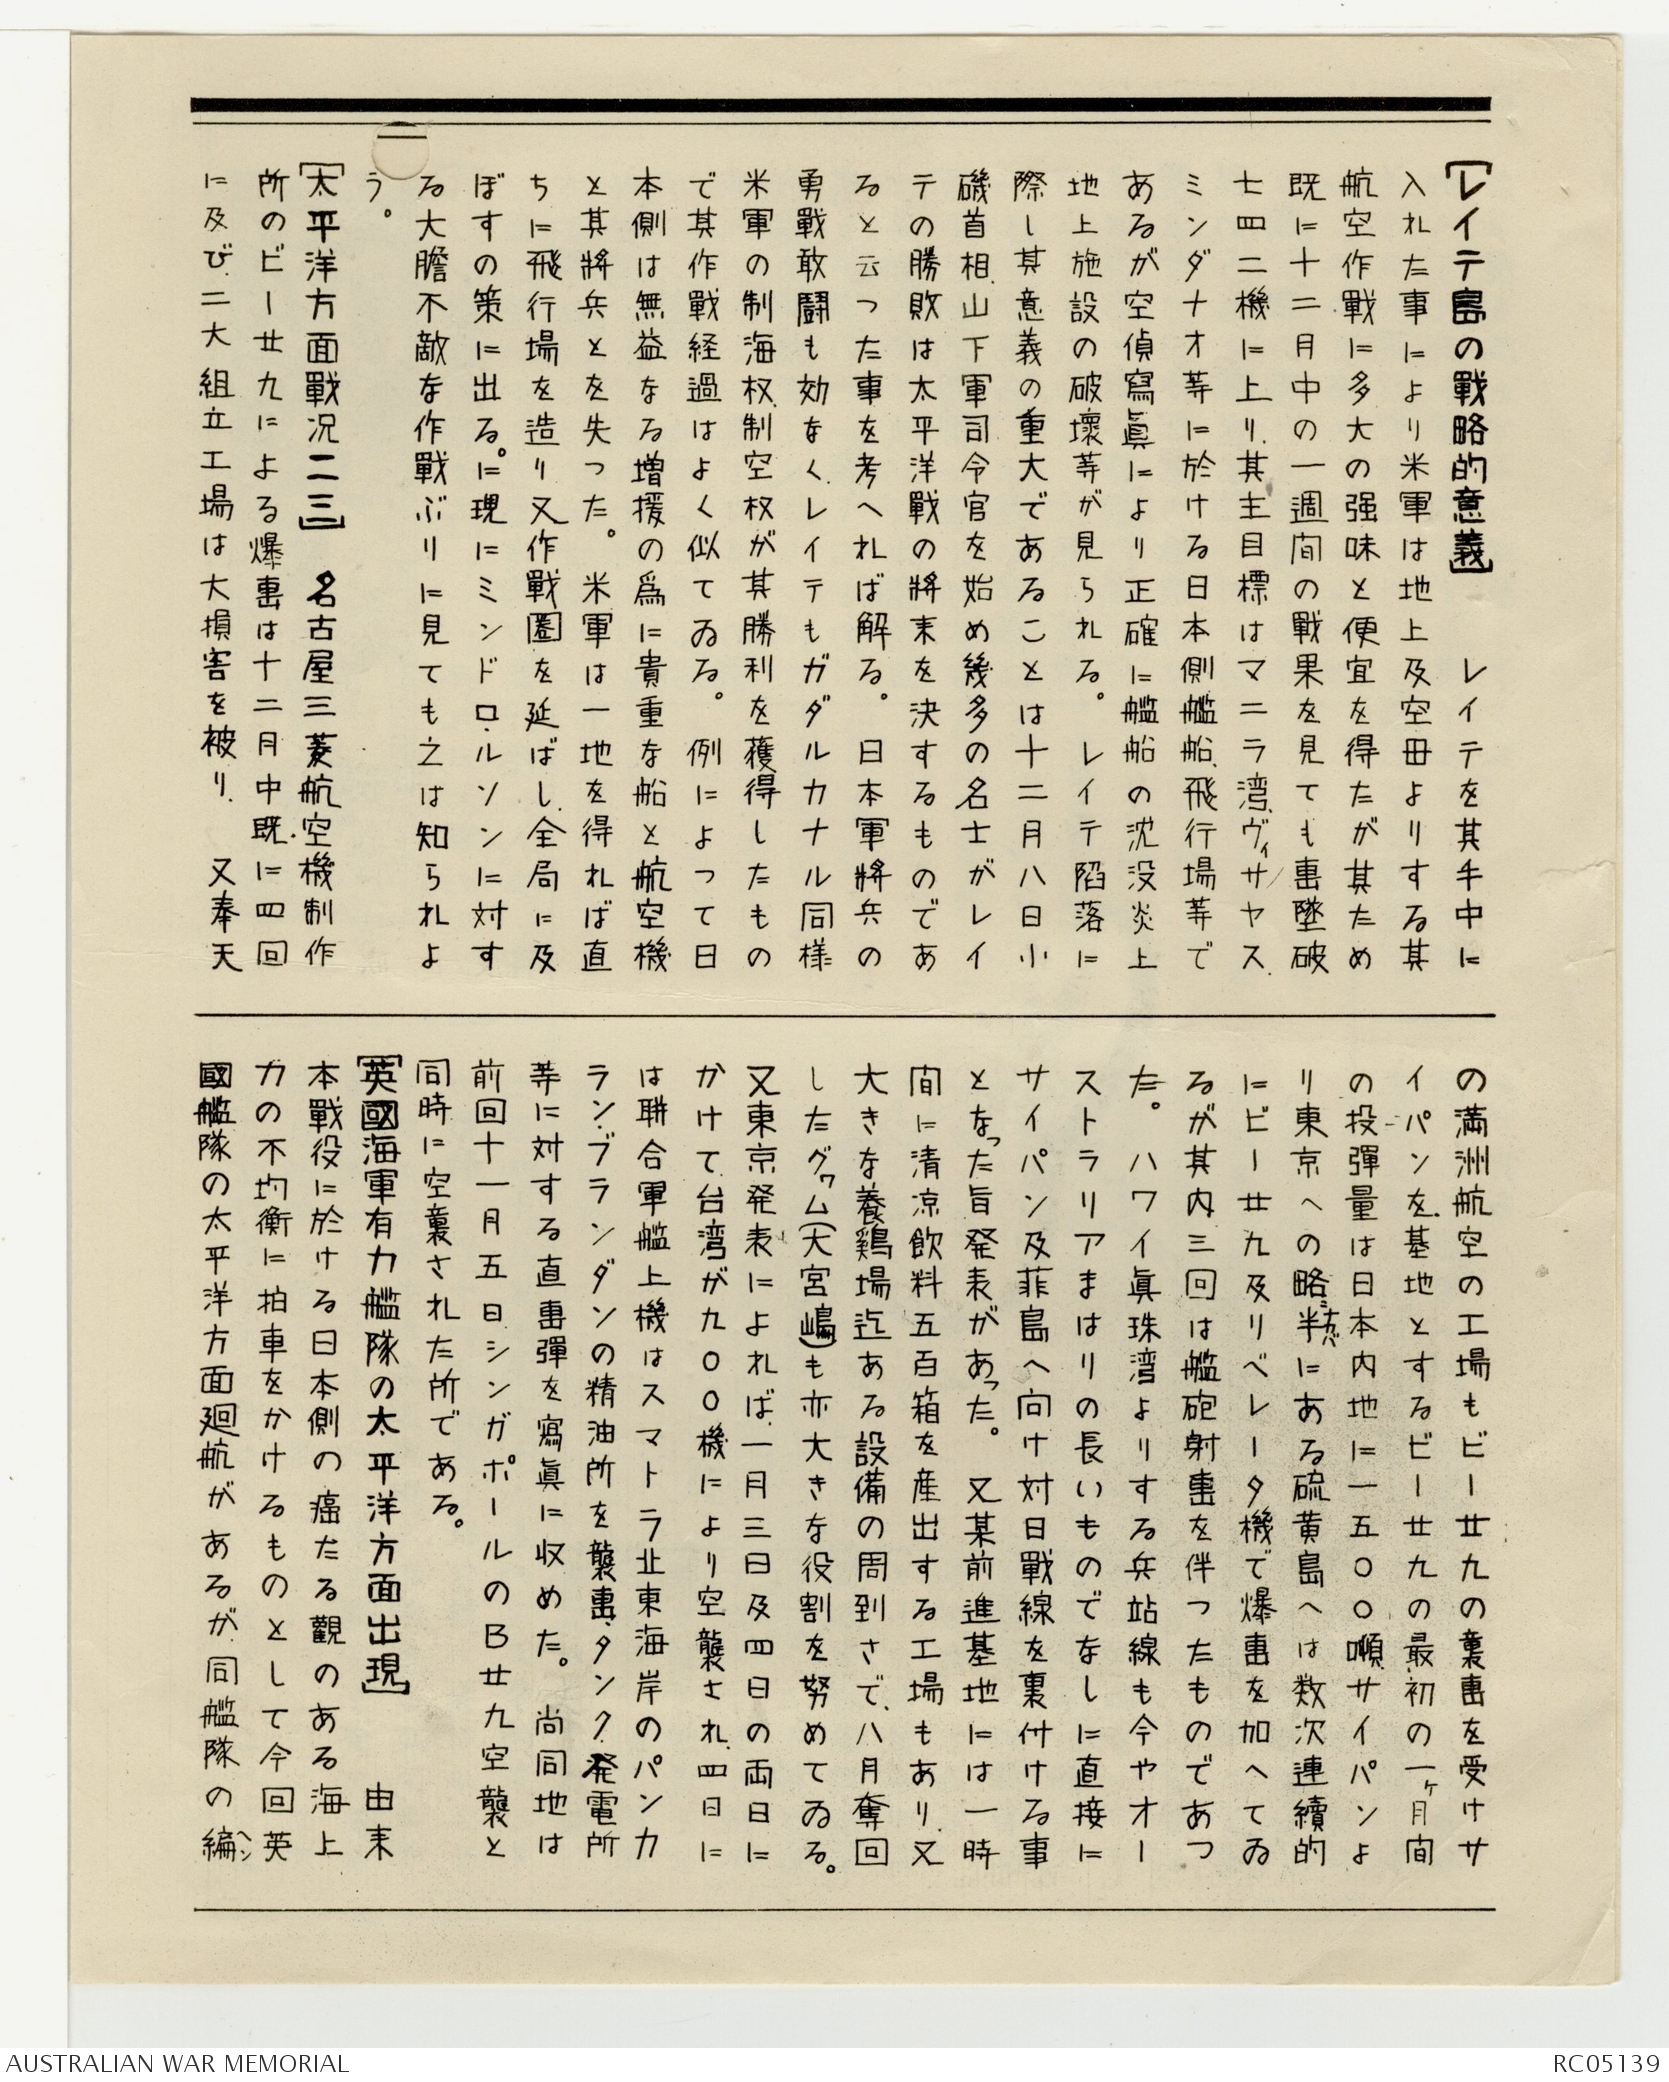 【レイテ島の戰略的意義】　レイテを其手中に
入れた事により米軍は地上及空母よりする其
航空作戰に多大の强味と便宜を得たが其ため
既に十二月中の一週间の戰果を見ても擊墜破
七四二機に上り、其主目標はマニラ湾、ヴィサヤス、
ミンダナオ䓁に於ける日本側艦船、飛行場䓁で
あるが空偵寫眞により正確に艦船の沈没炎上
地上施設の破壞䓁が見られる。　レイテ陷落に
際し其意義の重大であることは十二月八日小
磯首相、山下軍司令官を始め幾多の名士がレイ
テの勝敗は太平洋戰の將来を決するものであ
ると云つた事を考へれば解る。　日本軍將兵の
勇戰敢鬪も効なく、レイテもガダルカナル同様
米軍の制海权、制空权が其勝利を獲得したもの
で其作戰経過はよく似てゐる。　例によつて日
本側は無益なる増援の爲に貴重な船と航空機
と其將兵とを失つた。　米軍は一地を得れば直
ちに飛行場を造り又作戰圏を延ばし、全局に及
ぼすの策に出る。に現にミンドロ、ルソンに対す
る大膽不敵な作戰ぶりに見ても之は知られよ
う。
【太平洋方面戰况二三】　名古屋三菱航空機制作
所のビー廿九による爆擊は十二月中既に四回
に及び、二大組立工場は大損害を被り、　又奉天
の満洲航空の工場もビー廿九の襲擊を受けサ
イパンを基地とするビー廿九の最初の一ヶ月间
の投彈量は日本内地に一五〇〇噸、サイパンよ
り東京への略半ナカバにある硫黄島へは数次連續的
にビー廿九及リベレータ機で爆擊を加へてゐ
るが其内三回は艦砲射擊を伴つたものであつ
た。　ハワイ眞珠湾よりする兵站線も今やオー
ストラリアまはりの長いものでなしに直接に
サイパン及菲島へ向け対日戰線を裏付ける事
となった旨発表があった。　又某前進基地には一時
间に清凉飲料五百箱を産出する工場もあり、又
大きな養鶏場迄ある設備の周到さで、八月奪回
したグヮム（大宮嶋）も亦大きな役割を努めてゐる。
又東京発表によれば、一月三日及四日の両日に
かけて台湾が九〇〇機により空襲され、四日に
は聯合軍艦上機はスマトラ北東海岸のパンカ
ラン・ブランダンの精油所を襲擊、タンク、発電所
䓁に対する直擊彈を寫眞に収めた。　尚同地は
前回十一月五日シンガポールのＢ廿九空襲と
同時に空襲された所である。
【英國海軍有力艦隊の太平洋方面出現】　由来
本戰役に於ける日本側の癌たる觀のある海上
力の不均衡に拍車をかけるものとして今回英
國艦隊の太平洋方面廻航があるが、同艦隊の編ヘン